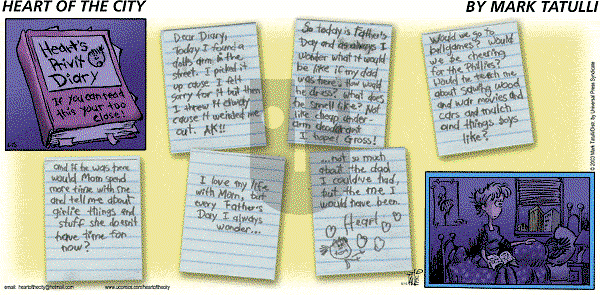 HEART OF THE CITY
BY MARK TATULLI
Heart's
Privit
Diary
If you can read
this your too
close!
Dear Diary,
Today I found a
doll's arm in the
street. I picked it
up cause I felt
sorry for it but then
I threw it away
cause it weirded me
out. AK!!
So today is Father's
Day and as always I
wonder what it would
be like if my dad
was here. How would
he dress? What does
he smell like? Not
like cheap under-
arm deodorant
I hope! Gross!
Would we go to
ballgames? Would
we be cheering
for the Phillies?
Would he teach me
about sawing wood
and war movies and
cars and mulch
and things boys
like?
and if he was here
would Mom spend
more time with me
and tell me about
girlie things and
stuff she doesn't
have time for
now?
I love my life
with Mom, but
every Father's
Day I always
wonder...
...not so much
about the dad
I could've had,
but the me I
would have been.
Heart
© 2003 Mark Tatulli/Dist. by Universal Press Syndicate
email: heartofthecity@hotmail.com
www.ucomics.com/heartofthecity